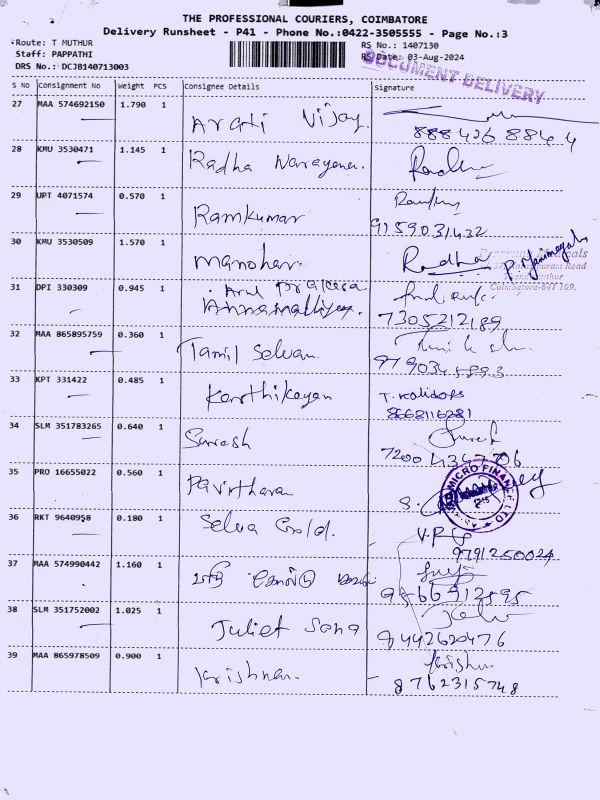 THE PROFESSIONAL COURIERS, COIMBATORE
Delivery Runsheet - P41 - Phone No.:0422-3505555 - Page No.:3
Route: T MUTHUR RS No.: 1407130
Staff: PAPPATHI RS Date: 03-Aug-2024
DRS No.: DCJB140713003
DOCUMENT DELIVERY
S No Consignment No Weight PCS Consignee Details Signature
27 MAA 574692150 1.790 1 Arati Vijay
888426 884 4
28 KMU 3530471 1.145 1 Radha Narayanan. Radha
29 UPT 4071574 0.570 1 Ramkumar
9159031432
30 KMU 3530509 1.570 1 Manohar. Radha P. Manimegala
Road
Coimbatore-641 109.
31 DPI 330309 0.945 1 Arul Prakasa
7305212189
32 MAA 865895759 0.360 1 Tamil Selvan.
33 KPT 331422 0.485 1 Karthikeyan T. Kalidass
8668116281
34 SLM 351783265 0.640 1 Suresh Suresh
7200 4347706
35 PRO 16655022 0.560 1 Pavithara S.
MICRO FINANCE LTD
36 RKT 9640958 0.180 1 Selva Gold.
9791250024
37 MAA 574990442 1.160 1
9566912595
38 SLM 351752002 1.025 1 Juliet Sona
9442620476
39 MAA 865978509 0.900 1 Krishnan. Krishn
8762315748